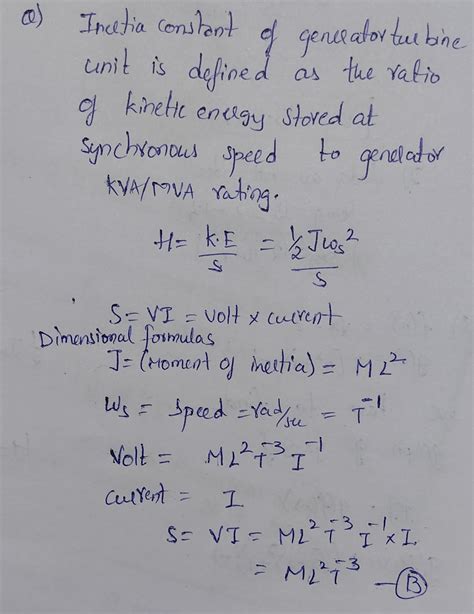 a) Inertia constant of generator turbine
unit is defined as the ratio
of kinetic energy stored at
synchronous speed to generator
KVA/MVA rating.
H = K.E/S = ½Jωs²/S
S = VI = volt × current
Dimensional formulas
J = (Moment of inertia) = ML²
ωs = speed = rad/sec = T⁻¹
Volt = ML²T⁻³I⁻¹
current = I
S = VI = ML²T⁻³I⁻¹ × I
= ML²T⁻³ —Ⓑ